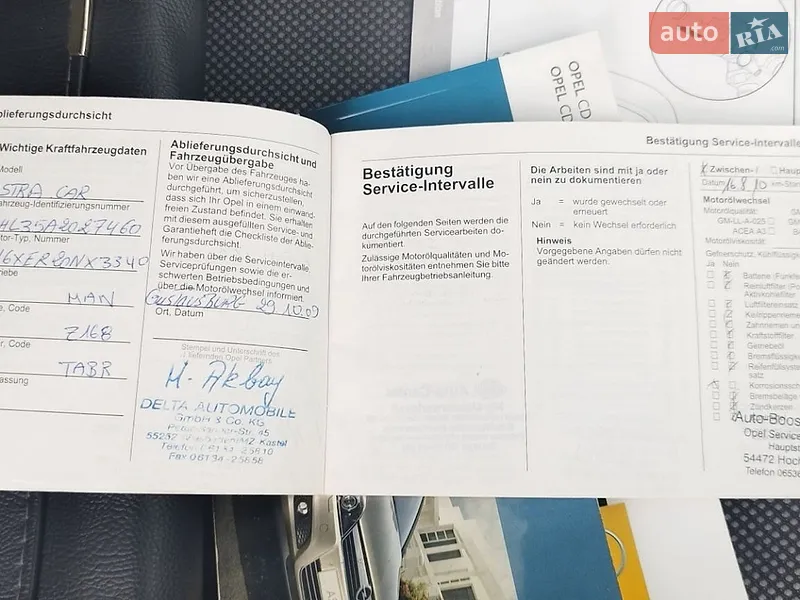 auto RIA .com
OPEL CD
OPEL CD
blieferungsdurchsicht
Wichtige Kraftfahrzeugdaten
Modell
STRA CAR
ahrzeug-Identifizierungsnummer
HL35A2027460
tor-Typ, Nummer
riebe
MAN
e, Code
Z168
r, Code
TABR
assung
Ablieferungsdurchsicht und
Fahrzeugübergabe
Vor Übergabe des Fahrzeuges ha-
ben wir eine Ablieferungsdurchsicht
durchgeführt, um sicherzustellen,
dass sich Ihr Opel in einem einwand-
freien Zustand befindet. Sie erhalten
mit diesem ausgefüllten Service- und
Garantieheft die Checkliste der Ablie-
ferungsdurchsicht.
Wir haben über die Serviceintervalle,
Serviceprüfungen sowie die er-
schwerten Betriebsbedingungen und
über die Motorwechsel informiert.
29 10.09
Ort, Datum
Stempel und Unterschrift des
liefernden Opel Partners
M. Akbay
DELTA AUTOMOBILE
GmbH & Co. KG
55252 Mainz-Kastel
Telefon 06134-25810
Fax 06134-25858
Bestätigung
Service-Intervalle
Auf den folgenden Seiten werden die
durchgeführten Servicearbeiten do-
kumentiert.
Zulässige Motorölqualitäten und Mo-
torölviskositäten entnehmen Sie bitte
Ihrer Fahrzeugbetriebsanleitung.
Bestätigung Service-Intervalle
Die Arbeiten sind mit ja oder
nein zu dokumentieren
Ja = wurde gewechselt oder
erneuert
Nein = kein Wechsel erforderlich
Hinweis
Vorgegebene Angaben dürfen nicht
geändert werden.
Zwischen-/ Haup
Datum 16.8.10 km-Stan
Motorölwechsel
Motorölqualität: GM
GM-LL-A-025 GM
ACEA A3
Motorölviskosität:
Ja Nein
Batterie (Funkfe
Reinluftfilter (Po
Aktivkohlefilter
Luftfiltereinsatz
Keilrippenrieme
Zahnriemen un
Kraftstofffilter
Getriebeöl
Bremsflüssigke
Reifenfüllsyste
satz
Korrosionssch
Bremsbeläge
Zündkerzen
Auto-Boos
Opel Service
Hauptst
54472 Hoch
Telefon 06536